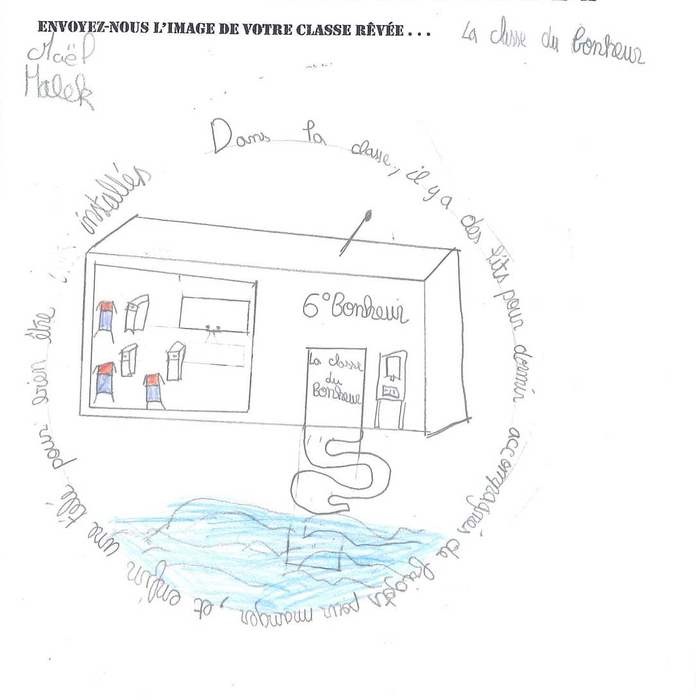 ENVOYEZ-NOUS L'IMAGE DE VOTRE CLASSE RÊVÉE . . .
La classe du bonheur
Maël
Malek
Dans la classe, il y a des lits pour dormir accompagnés de frigos pour manger, et enfin une télé pour bien être installés
6° Bonheur
La classe
du
Bonheur